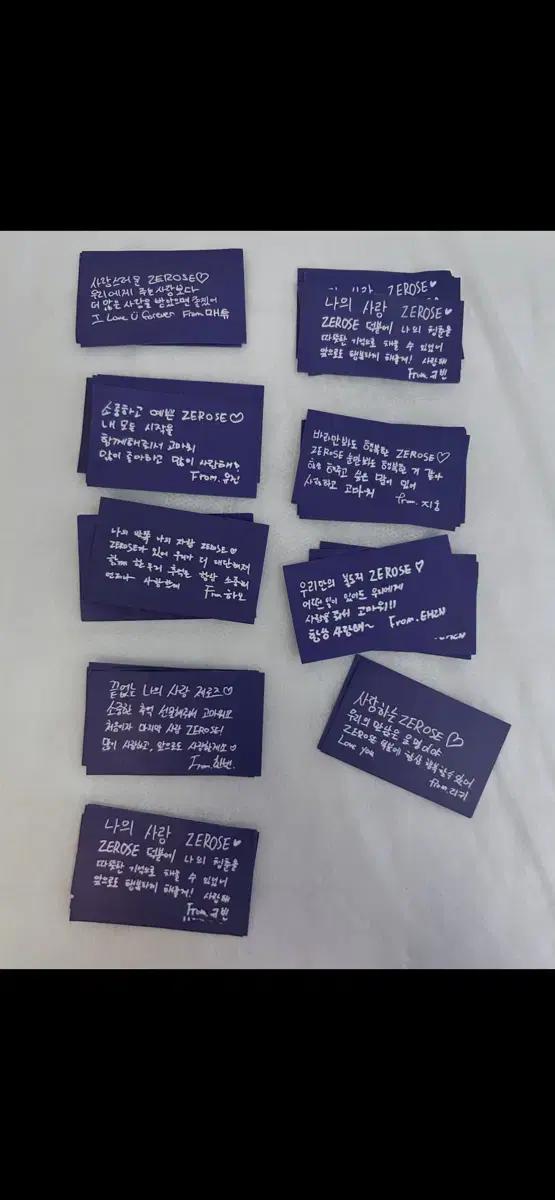 사랑스러운 ZEROSE♡
우리에게 주는 사랑보다
더 많은 사랑을 받았으면 좋겠어
I Love Ü forever From 매튜
ZEROSE♥
나의 사랑 ZEROSE♥
ZEROSE 덕분에 나의 청춘을
따뜻한 기억으로 채울 수 있었어
앞으로도 행복하게 해줄게! 사랑해
From. 규빈
소중하고 예쁜 ZEROSE♡
내 모든 시작을
함께해줘서 고마워
많이 좋아하고 많이 사랑해
From. 유진
바라만봐도 행복한 ZEROSE♡
ZEROSE 눈만봐도 행복한 거 같아
싶은 맘이 있어
사랑하고 고마워
from. 지웅
나의 반쪽 나의 자랑 ZEROSE♡
ZEROSE가 있어 우리가 더 대단해져
함께 한 우리 추억은 항상 소중해
언제나 사랑한다
From 하오
우리만의 ZEROSE♡
어떤 일이 있어도 우리에게
사랑을 줘서 고마워!!
항상 사랑해~ From.
끝없는 나의 사랑 제로즈♡
소중한 추억 선물해줘서 고마워요
처음이자 마지막 사랑 ZEROSE!
많이 사랑하고, 앞으로도 사랑할게요♡
From. 한빈.
사랑하는 ZEROSE♡
우리의 만남은 운명이야
ZEROSE 덕분에 항상 행복할 수 있어
Love you
from. 리키
나의 사랑 ZEROSE♥
ZEROSE 덕분에 나의 청춘을
따뜻한 기억으로 채울 수 있었어
앞으로도 행복하게 해줄게! 사랑해
From. 규빈